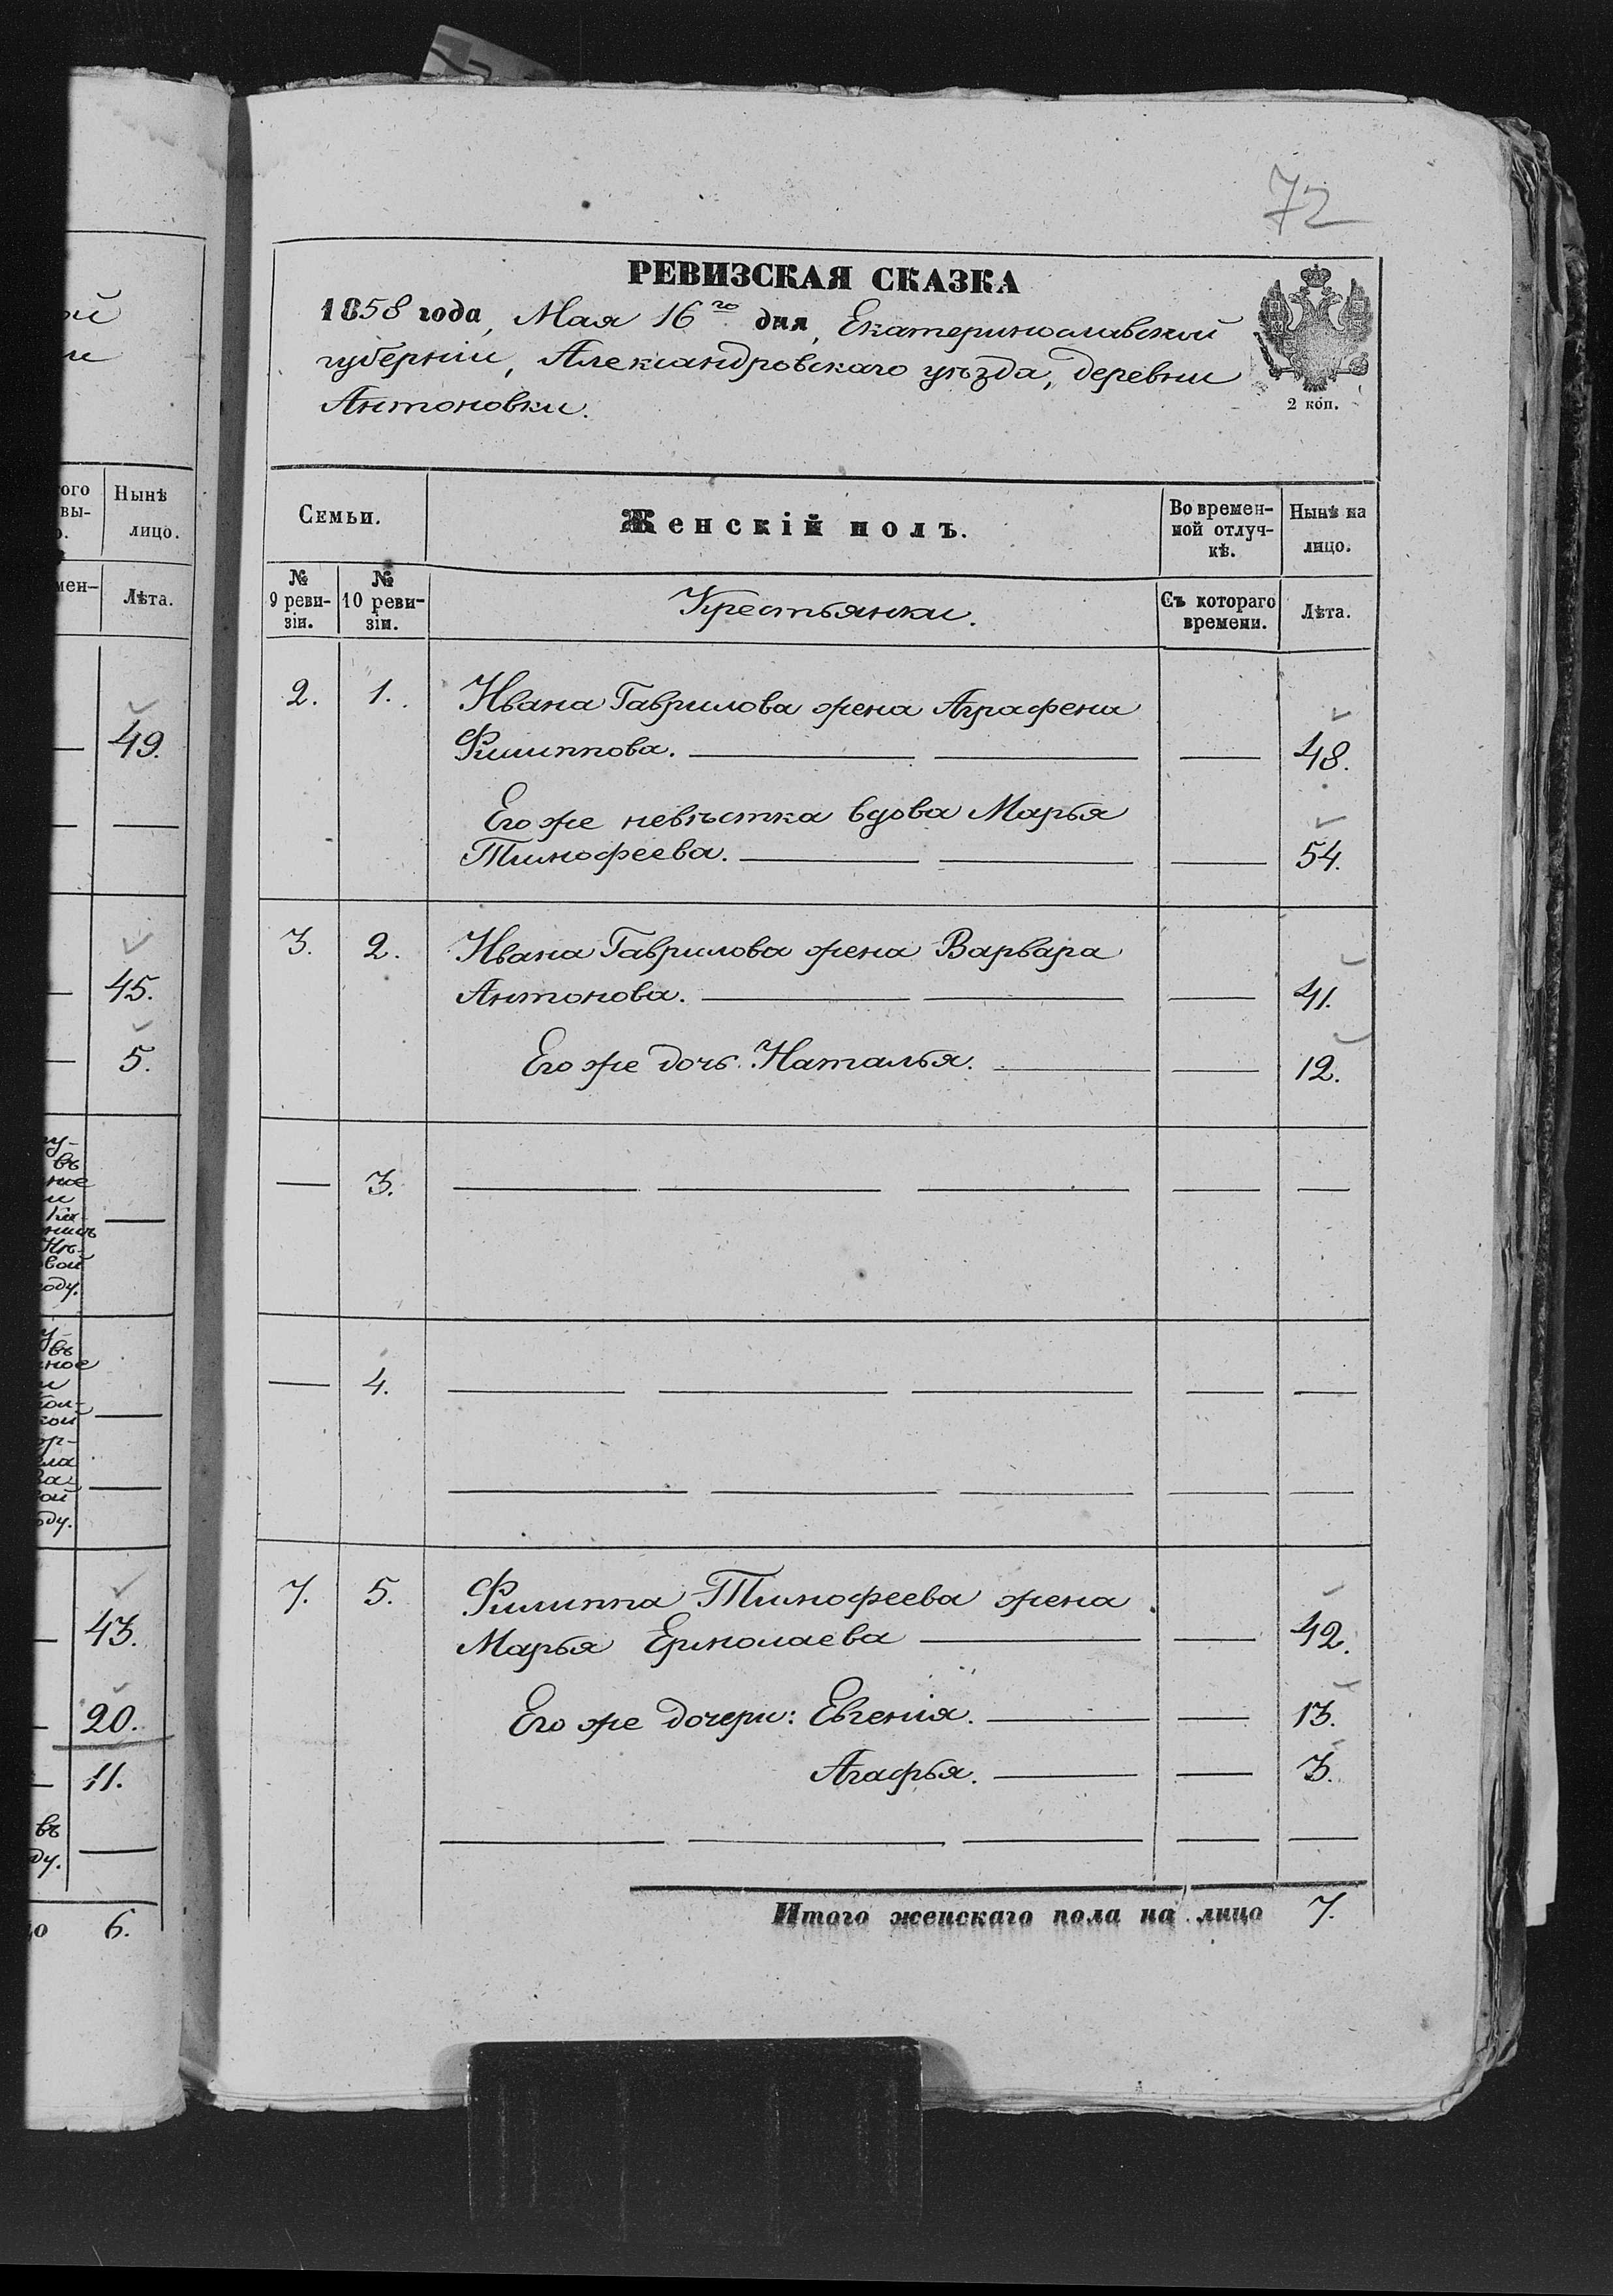 72
РЕВИЗСКАЯ СКАЗКА
1858 года, Мая 16го дня, Екатеринославской
губерніи, Александровскаго уѣзда, деревни
Антоновки.
2 коп.
Семьи.
Женскій полъ.
Во времен-
ной отлуч-
кѣ.
Нынѣ на
лицо.
№
9 реви-
зіи.
№
10 реви-
зіи.
Крестьянки.
Съ котораго
времени.
Лѣта.
2. 1. Ивана Гаврилова жена Аграфена
Филиппова. — — — 48.
Его же невѣстка вдова Марья
Тимофеева. — — — 54.
3. 2. Ивана Гаврилова жена Варвара
Антонова. — — — 41.
Его же дочь Наталья. — — 12.
— 3. — — — — —
— 4. — — — — —
— — — — —
7. 5. Филиппа Тимофеева жена
Марья Ермолаева — — 42.
Его же дочери: Евгенія. — — 13.
Агафья. — — 3.
— — — — —
Итого женскаго пола на лицо 7.
Нынѣ
лицо.
Лѣта.
49.
45.
5.
43.
20.
11.
въ
6.